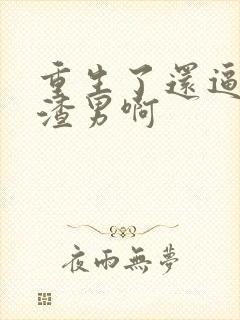 重生了還逼
渣男啊
夜雨無夢